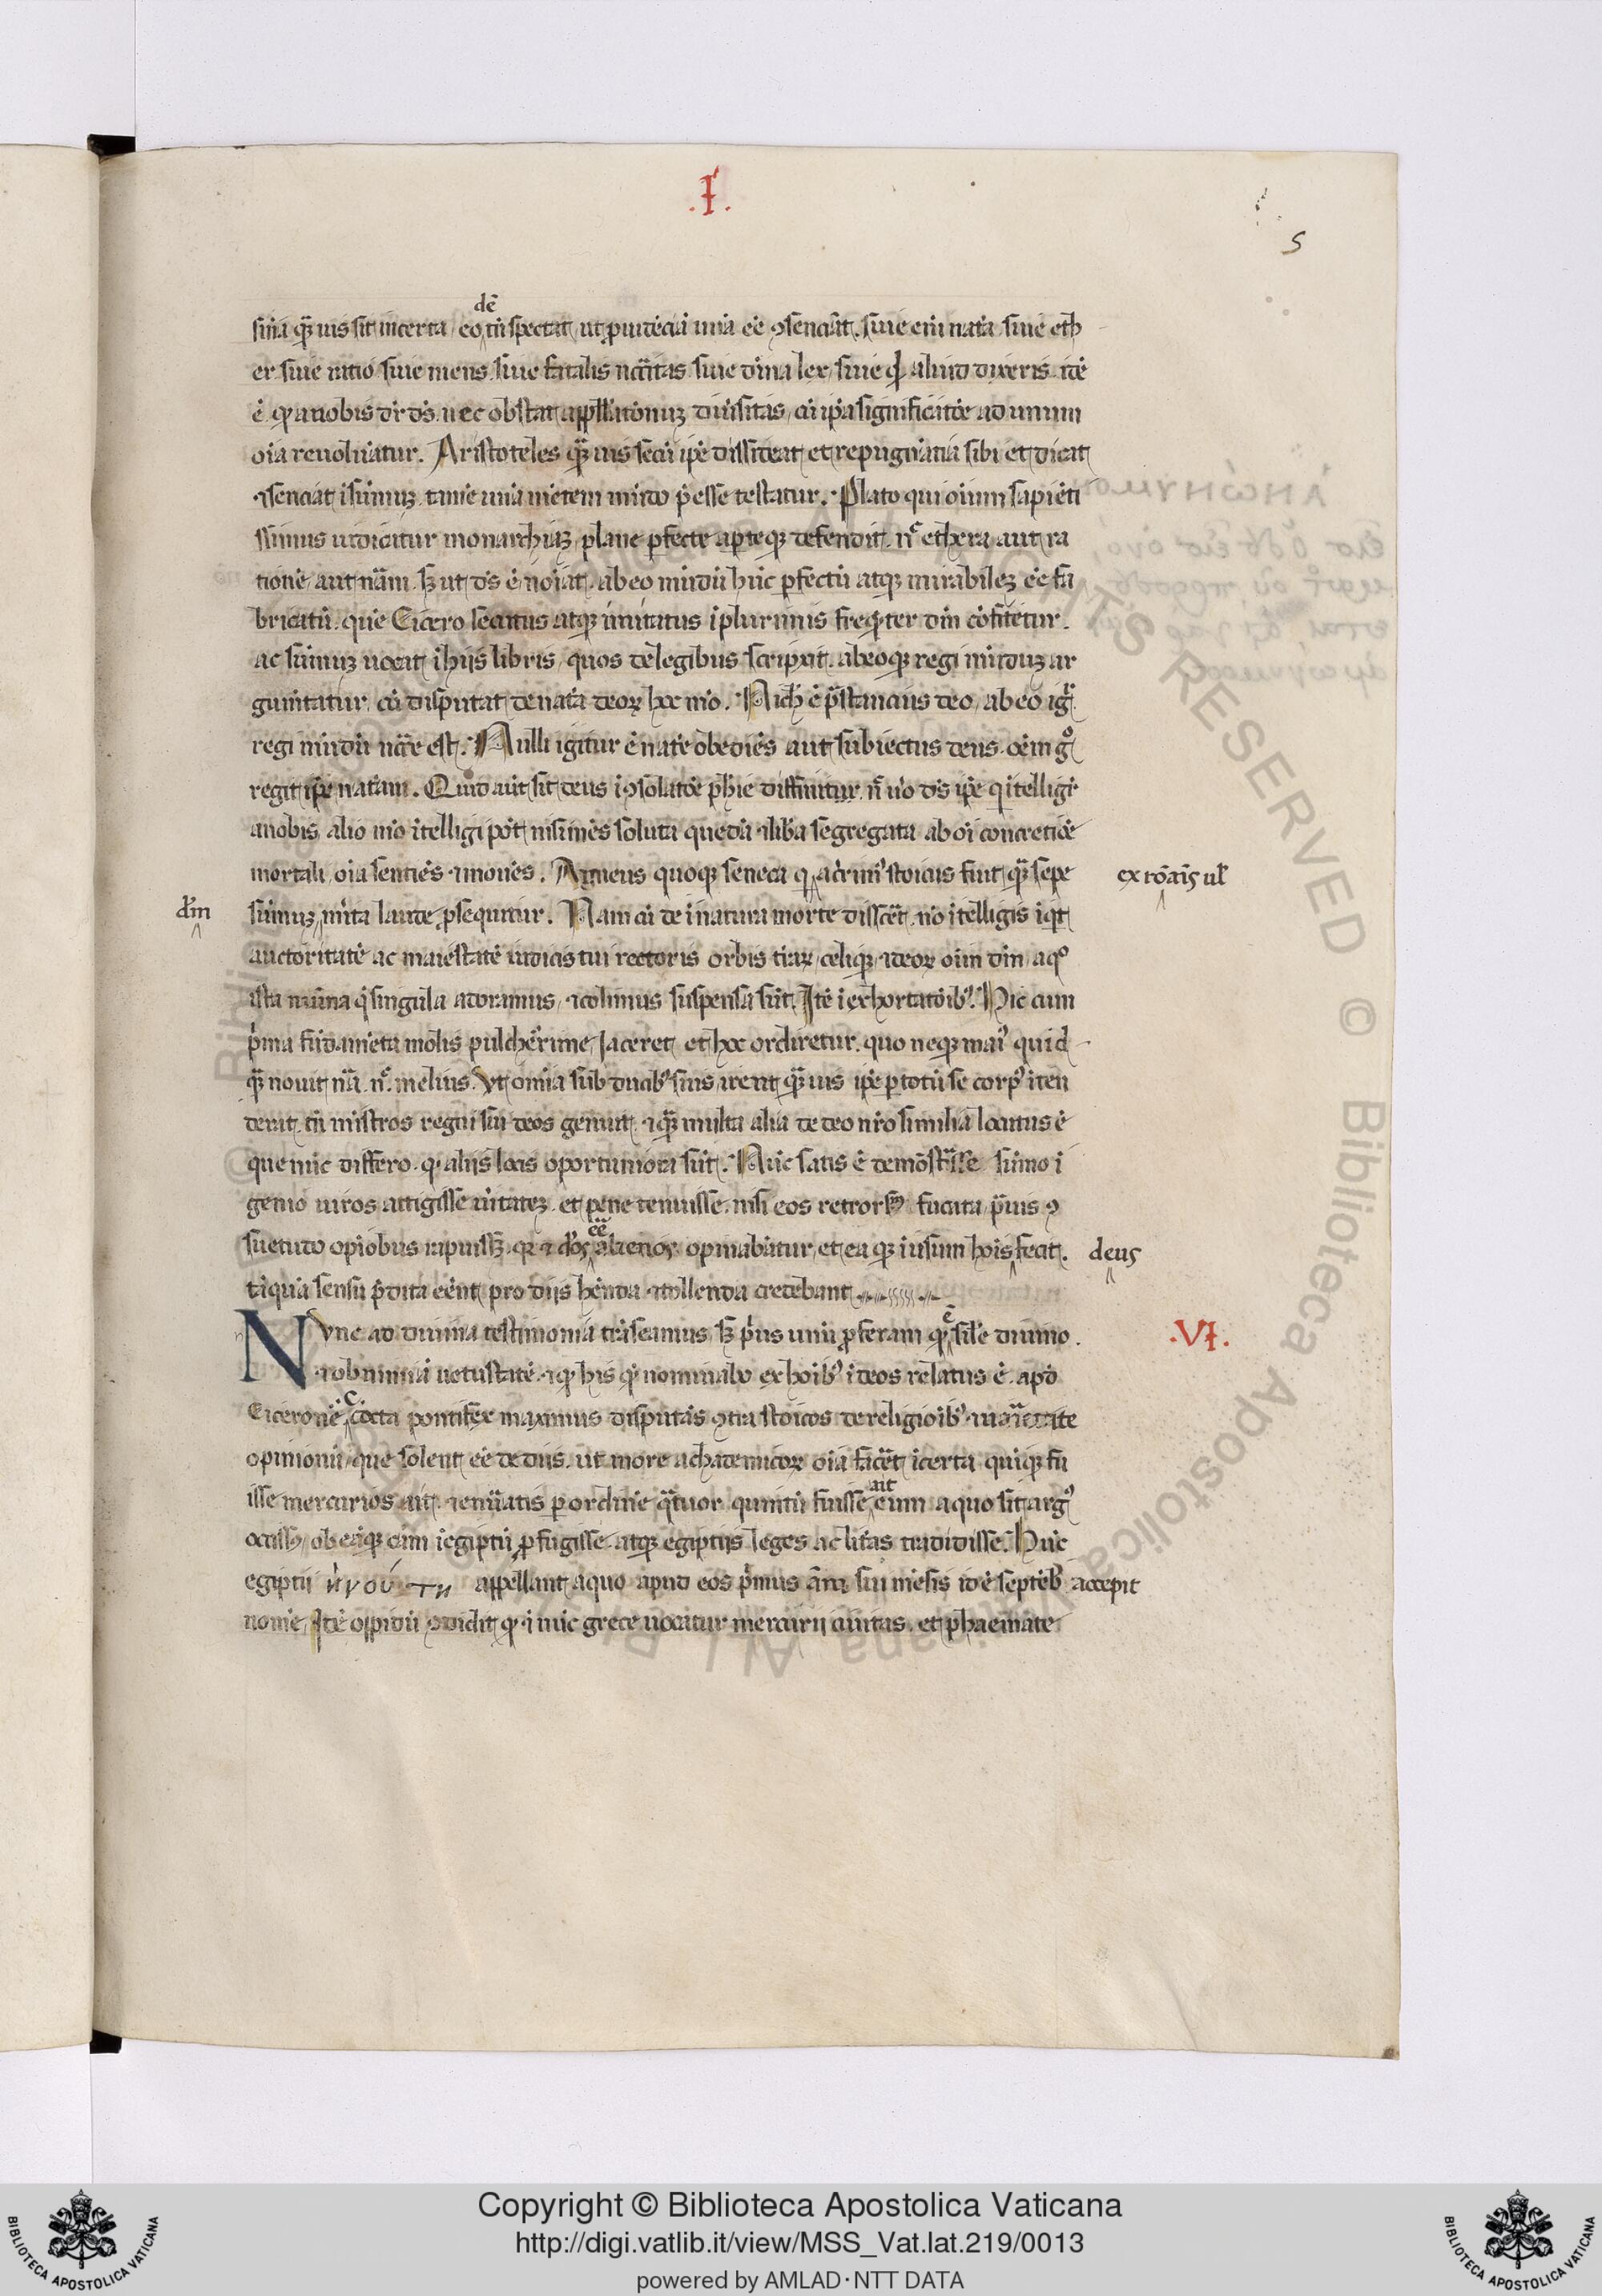 .I.
5
dē
sīna q̄ȝ uis sit incerta eo tn̄ spectat ut ꝓuidēciā unā eē ꝯsenciāt. siue eni nat̾a siue eth
er siue ratio siue mens siue fatalis nc̄citas siue diīna lex, siue qd̄ aliud dixeris. idē
ē qͥ anobis dr̄ ds̄. nec obstat appellationuȝ diu̾sitas, cū ip̄a significatōe ad unum
oīa reuoluātur. Aristoteles q̄ȝ uis secū ip̄e dissideat et repugnātia sibi et dicat
⁊senciat isūmuȝ. tamē unā mētem mūdo p̄esse testatur. Plato qui oīum sapiēti
ssimus iudicitur monarchiaȝ plane ꝑfecte aꝑteqȝ defendit. nͨ ethera aut ra
tionē aut nām. sȝ ut ds̄ ē noīat. ab eo mūdū hūc ꝑfectū atqȝ mirabileȝ eē fa
bricatū. quē Cicero secutus atqȝ imitatus i plurimis freqn̄ter dm̄ cōfitetur.
ac sūmuȝ uocat i hiis libris, quos de legibus scripsit. ab eoqȝ regi mūduȝ ar
gum̄tatur, cū disputat de nat̾a deoꝝ hoc mō. Nichil ē p̄stancius deo, ab eo igr̄
regi mūdū nc̄ce est. Nulli igitur ē nat̾e obediēs aut subiectus deus. oēm gͦ
regit ip̄e nat̾am. Quid aūt sit deus i ꝯsolatōe ph̄ie diffinitur n̄ uō ds̄ ip̄e qͥ itelligiͬ
anobis alio mō itelligi pōt nisi mēs soluta quedā ⁊ lib̾a segregata ab oī concretiōe
mortali, oīa sentiēs ⁊ mouēs. Anneus quoqȝ seneca qͥ acͥrimꝰ stoicus fuit q̄ȝ sepe
ex rōāis ul̄
dm̄
sūmuȝ m̾ita laude ꝓsequitur. Nam cū de inatura morte dissc̾et. nō itelligis iqͥt
auctoritatē ac maiestatē iudicis tui rectoris orbis t̾raꝝ celiqȝ ⁊ deoꝝ oīm dm̄, aqͦ
ista nuīna qͥ singula adoramus, ⁊ colimus suspensa sūt. Itē i exhortatōibꝰ. Hic cum
pͥma fūdamēta molis pulcherrime iaceret et hoc ordiretur. quo neqȝ maiꝰ quid
q̄ȝ nouit nā. nͨ melius. Vt omīa sub ducibꝰ suis irent q̄ȝ uis ip̄e ꝑ totū se corpꝰ iten
derat. tn̄ mistros regni sui deos genuit. ⁊ q̄ȝ multa alia de deo nr̄o similia locutus ē
que nūc differo. qͥ aliis locis oportuniora sūt. Nūc satis ē demōstrasse sūmo i
genio uiros attigisse u̾itateȝ et pene tenuisse. nisi eos retrorsꝰ fucata p̾uis ꝯ
eē
suetudo opīobus rapuissȝ. qͣ ⁊ deos alienos opinabātur, et ea qȝ iusum hois fecit.
deus
tāquā sensu p̾dita eēnt pro diis hēnda ⁊ collenda credebant
N vnc ad diuina testimonia trāseamus. sȝ pͥus unū ꝓferam qͥ ē sile diuino.
.VI.
⁊ ob nimiā uetustatē. ⁊ qͥ his qͥ nominabo ex hoibꝰ i deos relatus ē. apd̄
Ciceronē c cocta pontifex maximus disputās ꝯtra stoicos de religioībꝰ ⁊ uarietate
opinionū que solent eē de diis. ut more achademicoꝝ oīa facēt icerta quiqȝ fu
ait
isse mercurios ait. ⁊ enūatis ꝑ ordinē qͣtuor quintū fuisse eum aquo sit argꝰ
occissꝰ, ob eāqȝ cām i egiptū ꝓfugisse. atqȝ egiptiis leges ac litt̾as tradidisse. Hūc
egiptii appellant aquo apud eos pͥmus ānī sui mēsis id ē septēbꝰ accepit
nomē, Itē oppidū ꝯdidit qͥ ⁊ nūc grece uocatur mercurii ciuitas. et phaenate
Copyright © Biblioteca Apostolica Vaticana
http://digi.vatlib.it/view/MSS_Vat.lat.219/0013
powered by AMLAD·NTT DATA